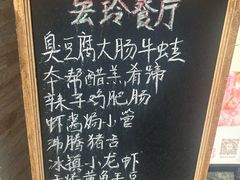 宏玲餐厅
臭豆腐大肠牛蛙
本帮醋羔肴蹄
辣子鸡肥肠
虾离焗小管
沸腾猪舌
冰镇小龙虾
黄鱼